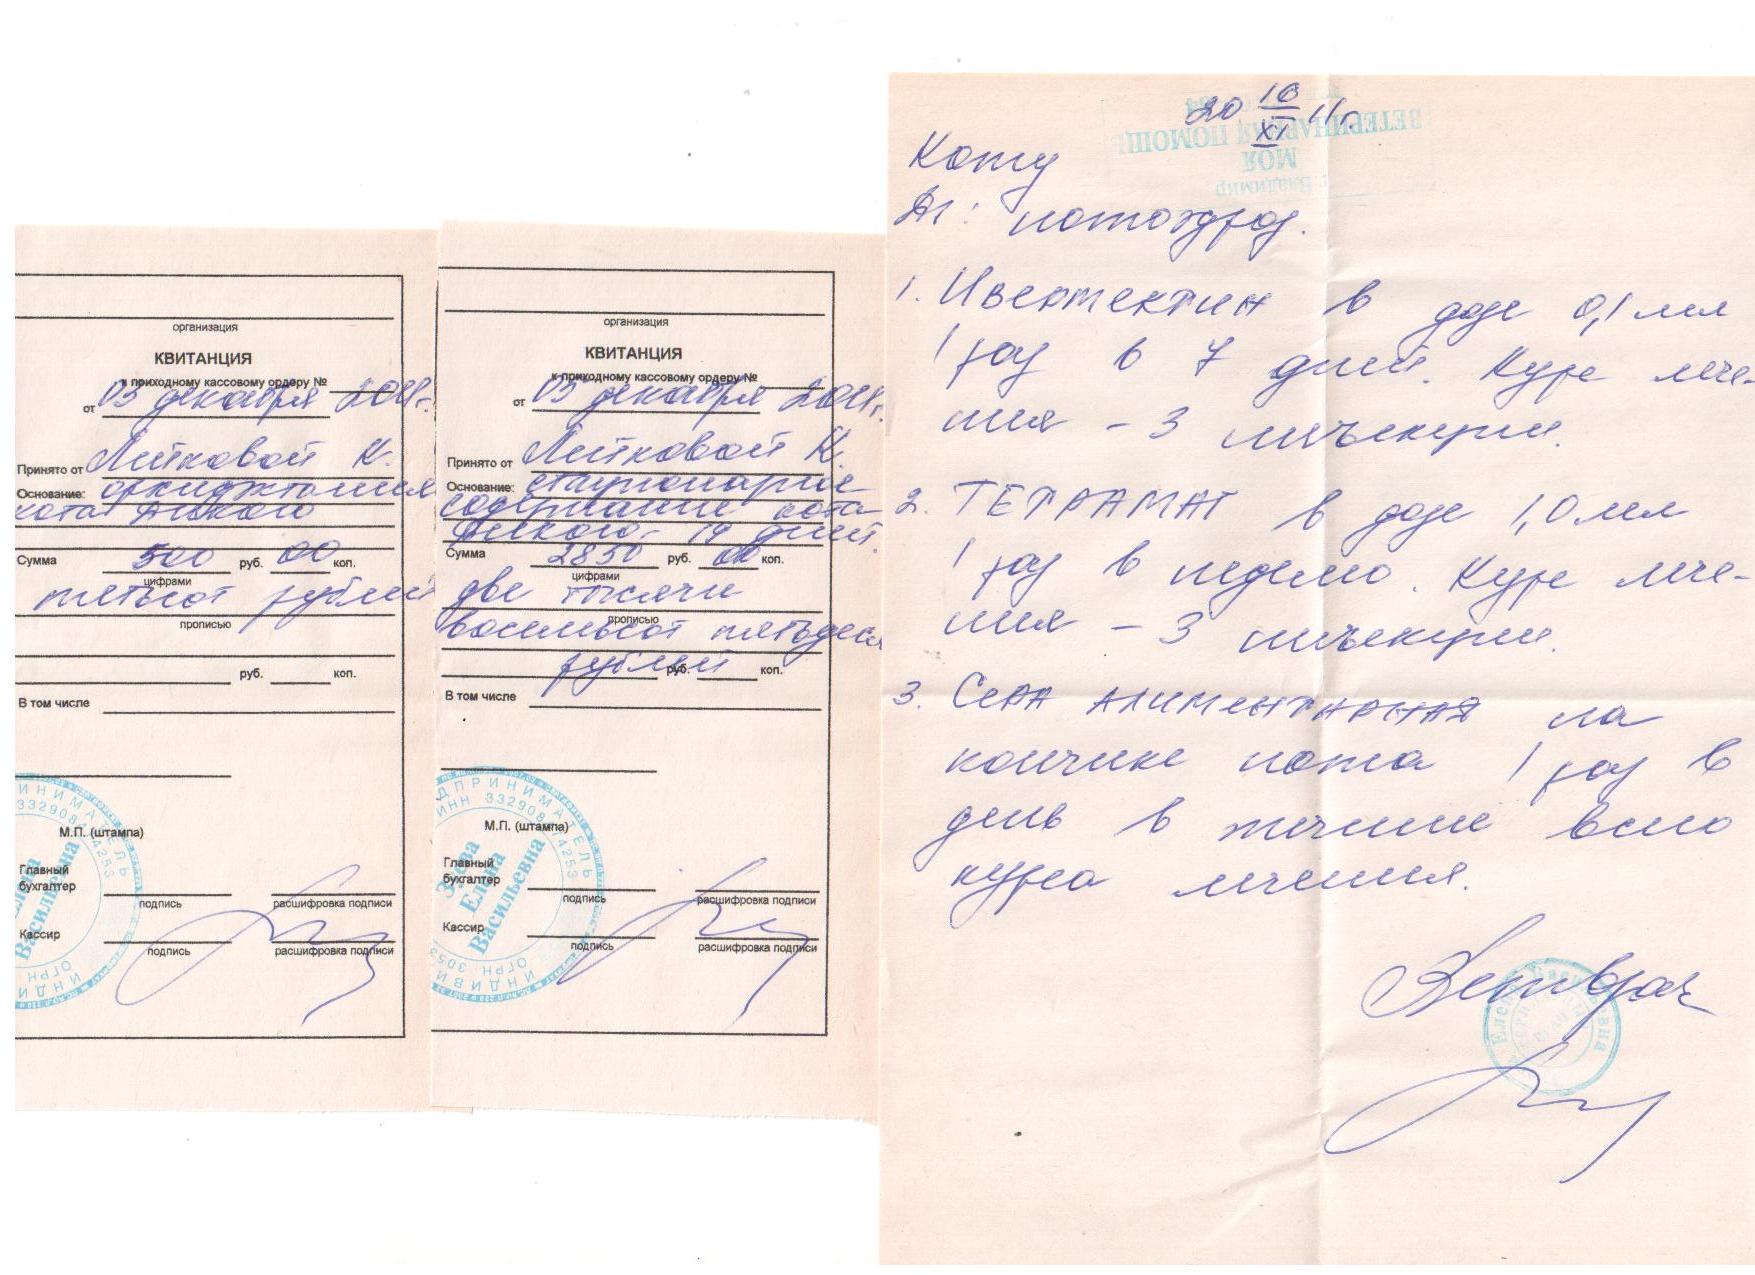 организация
КВИТАНЦИЯ
к приходному кассовому ордеру №
от 03 декабря 2011г.
Принято от Летковой К.
Основание: орхиджтомия
кота рыжего
Сумма 500 руб. 00 коп.
цифрами
пятьсот рублей
прописью
руб. коп.
В том числе
М.П. (штампа)
Главный
бухгалтер
подпись расшифровка подписи
Кассир
подпись расшифровка подписи
Елена
Васильевна
организация
КВИТАНЦИЯ
к приходному кассовому ордеру №
от 03 декабря 2011г.
Принято от Летковой К.
Основание: стационарное
содержание кота
рыжего - 19 дней.
Сумма 2850 руб. 00 коп.
цифрами
две тысячи
прописью
восемьсот пятьдеся
рублей руб. коп.
В том числе
М.П. (штампа)
Главный
бухгалтер
подпись расшифровка подписи
Кассир
подпись расшифровка подписи
Елена
Васильевна
20 16/XI 11г.
г. Владимир
МОЯ
ВЕТЕРИНАРНАЯ ПОМОЩЬ
Коту
Ds: нотоэдроз.
1. Ивермектин в дозе 0,1 мл
1 раз в 7 дней. Курс лече-
ния - 3 инъекции.
2. ТЕТРАМАГ в дозе 1,0 мл
1 раз в неделю. Курс лече-
ния - 3 инъекции.
3. Сера алиментарная на
кончике ножа 1 раз в
день в течение всего
курса лечения.
Ветврач